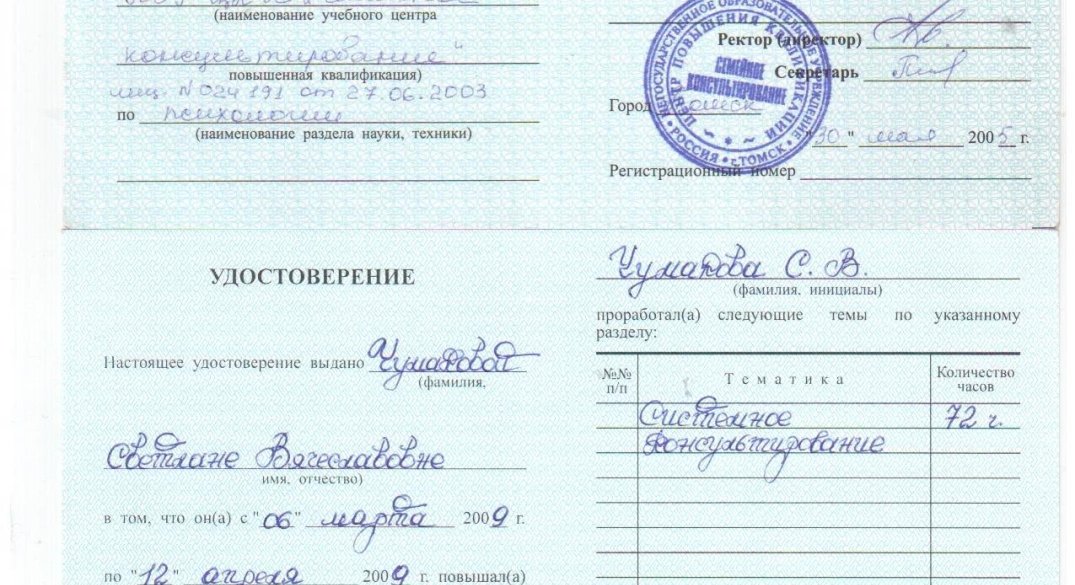 (наименование учебного центра
консультирование"
повышенная квалификация)
лиц. №024191 от 27.06.2003
по психологии
(наименование раздела науки, техники)
НЕГОСУДАРСТВЕННОЕ ОБРАЗОВАТЕЛЬНОЕ УЧРЕЖДЕНИЕ
ЦЕНТР ПОВЫШЕНИЯ КВАЛИФИКАЦИИ
СЕМЕЙНОЕ
КОНСУЛЬТИРОВАНИЕ
РОССИЯ • г.ТОМСК
Ректор (директор)
Секретарь
Город Томск
"30" мая 2005 г.
Регистрационный номер
УДОСТОВЕРЕНИЕ
Настоящее удостоверение выдано Чумаковой
(фамилия,
Светлане Вячеславовне
имя, отчество)
в том, что он(а) с "06" марта 2009 г.
по "12" апреля 2009 г. повышал(а)
Чумакова С. В.
(фамилия, инициалы)
проработал(а) следующие темы по указанному
разделу:
№№ п/п Тематика Количество часов
Системное 72 ч.
консультирование